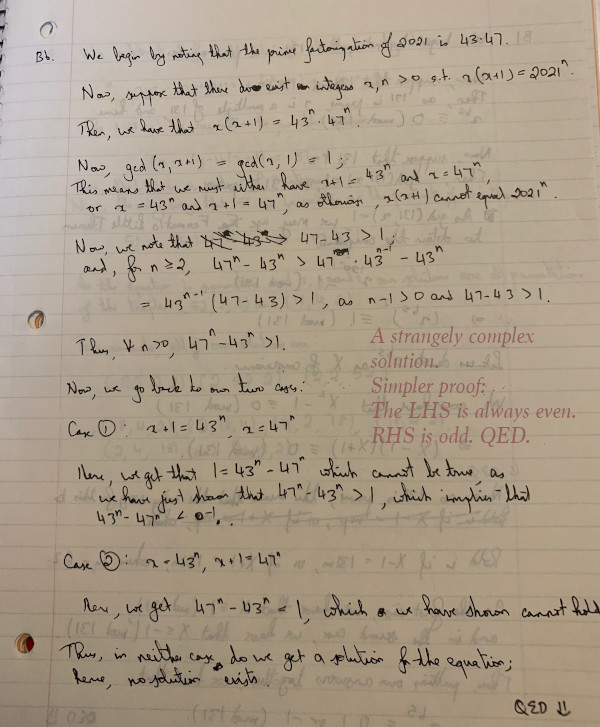 B6. We begin by noting that the prime factorization of 2021 is 43·47.
Now, suppose that there do exist integers x,n > 0 s.t. x(x+1) = 2021ⁿ.
Then, we have that x(x+1) = 43ⁿ · 47ⁿ.
Now, gcd(x, x+1) = gcd(x, 1) = 1;
This means that we must either have x+1 = 43ⁿ and x = 47ⁿ,
or x = 43ⁿ and x+1 = 47ⁿ, as otherwise, x(x+1) cannot equal 2021ⁿ.
Now, we note that 47-43 > 1;
and, for n ≥ 2, 47ⁿ - 43ⁿ > 47 · 43ⁿ⁻¹ - 43ⁿ
= 43ⁿ⁻¹ (47-43) > 1, as n-1 > 0 and 47-43 > 1.
Thus, ∀ n>0, 47ⁿ - 43ⁿ > 1.
A strangely complex
solution.
Simpler proof:
The LHS is always even.
RHS is odd. QED.
Now, we go back to our two cases:
Case ①: x+1 = 43ⁿ, x = 47ⁿ
Here, we get that 1 = 43ⁿ - 47ⁿ which cannot be true, as
we have just shown that 47ⁿ - 43ⁿ > 1, which implies that
43ⁿ - 47ⁿ < -1.
Case ②: x = 43ⁿ, x+1 = 47ⁿ
Here, we get 47ⁿ - 43ⁿ = 1, which we have shown cannot hold
Thus, in neither case do we get a solution for the equation;
hence, no solution exists.
QED